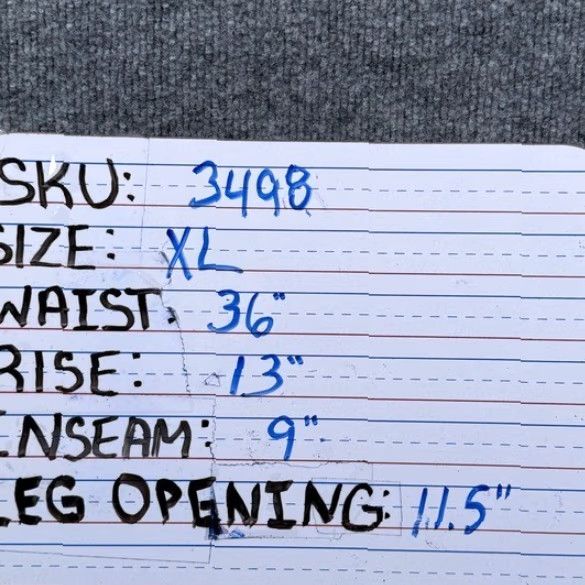 SKU: 3498
SIZE: XL
WAIST: 36"
RISE: 13"
INSEAM: 9"
LEG OPENING: 11.5"